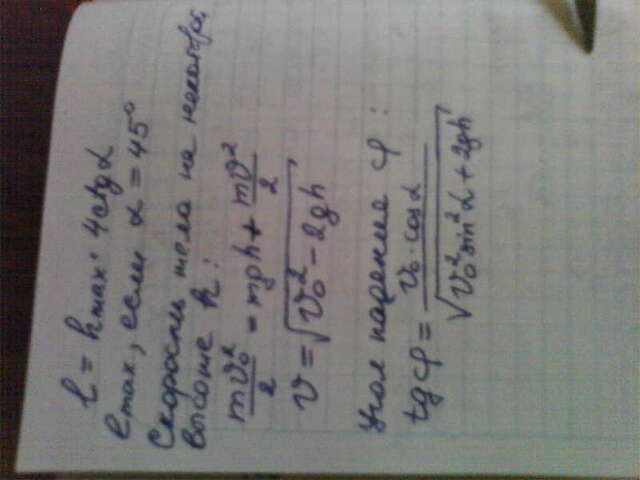 l = hmax · 4ctgα
lmax, если α = 45°
Скорость тела на некоторой
высоте h:
mv₀²/2 = mgh + mv²/2
v = √(v₀² - 2gh)
Угол падения φ:
tgφ = v₀·cosα/√(v₀²sin²α + 2gh)